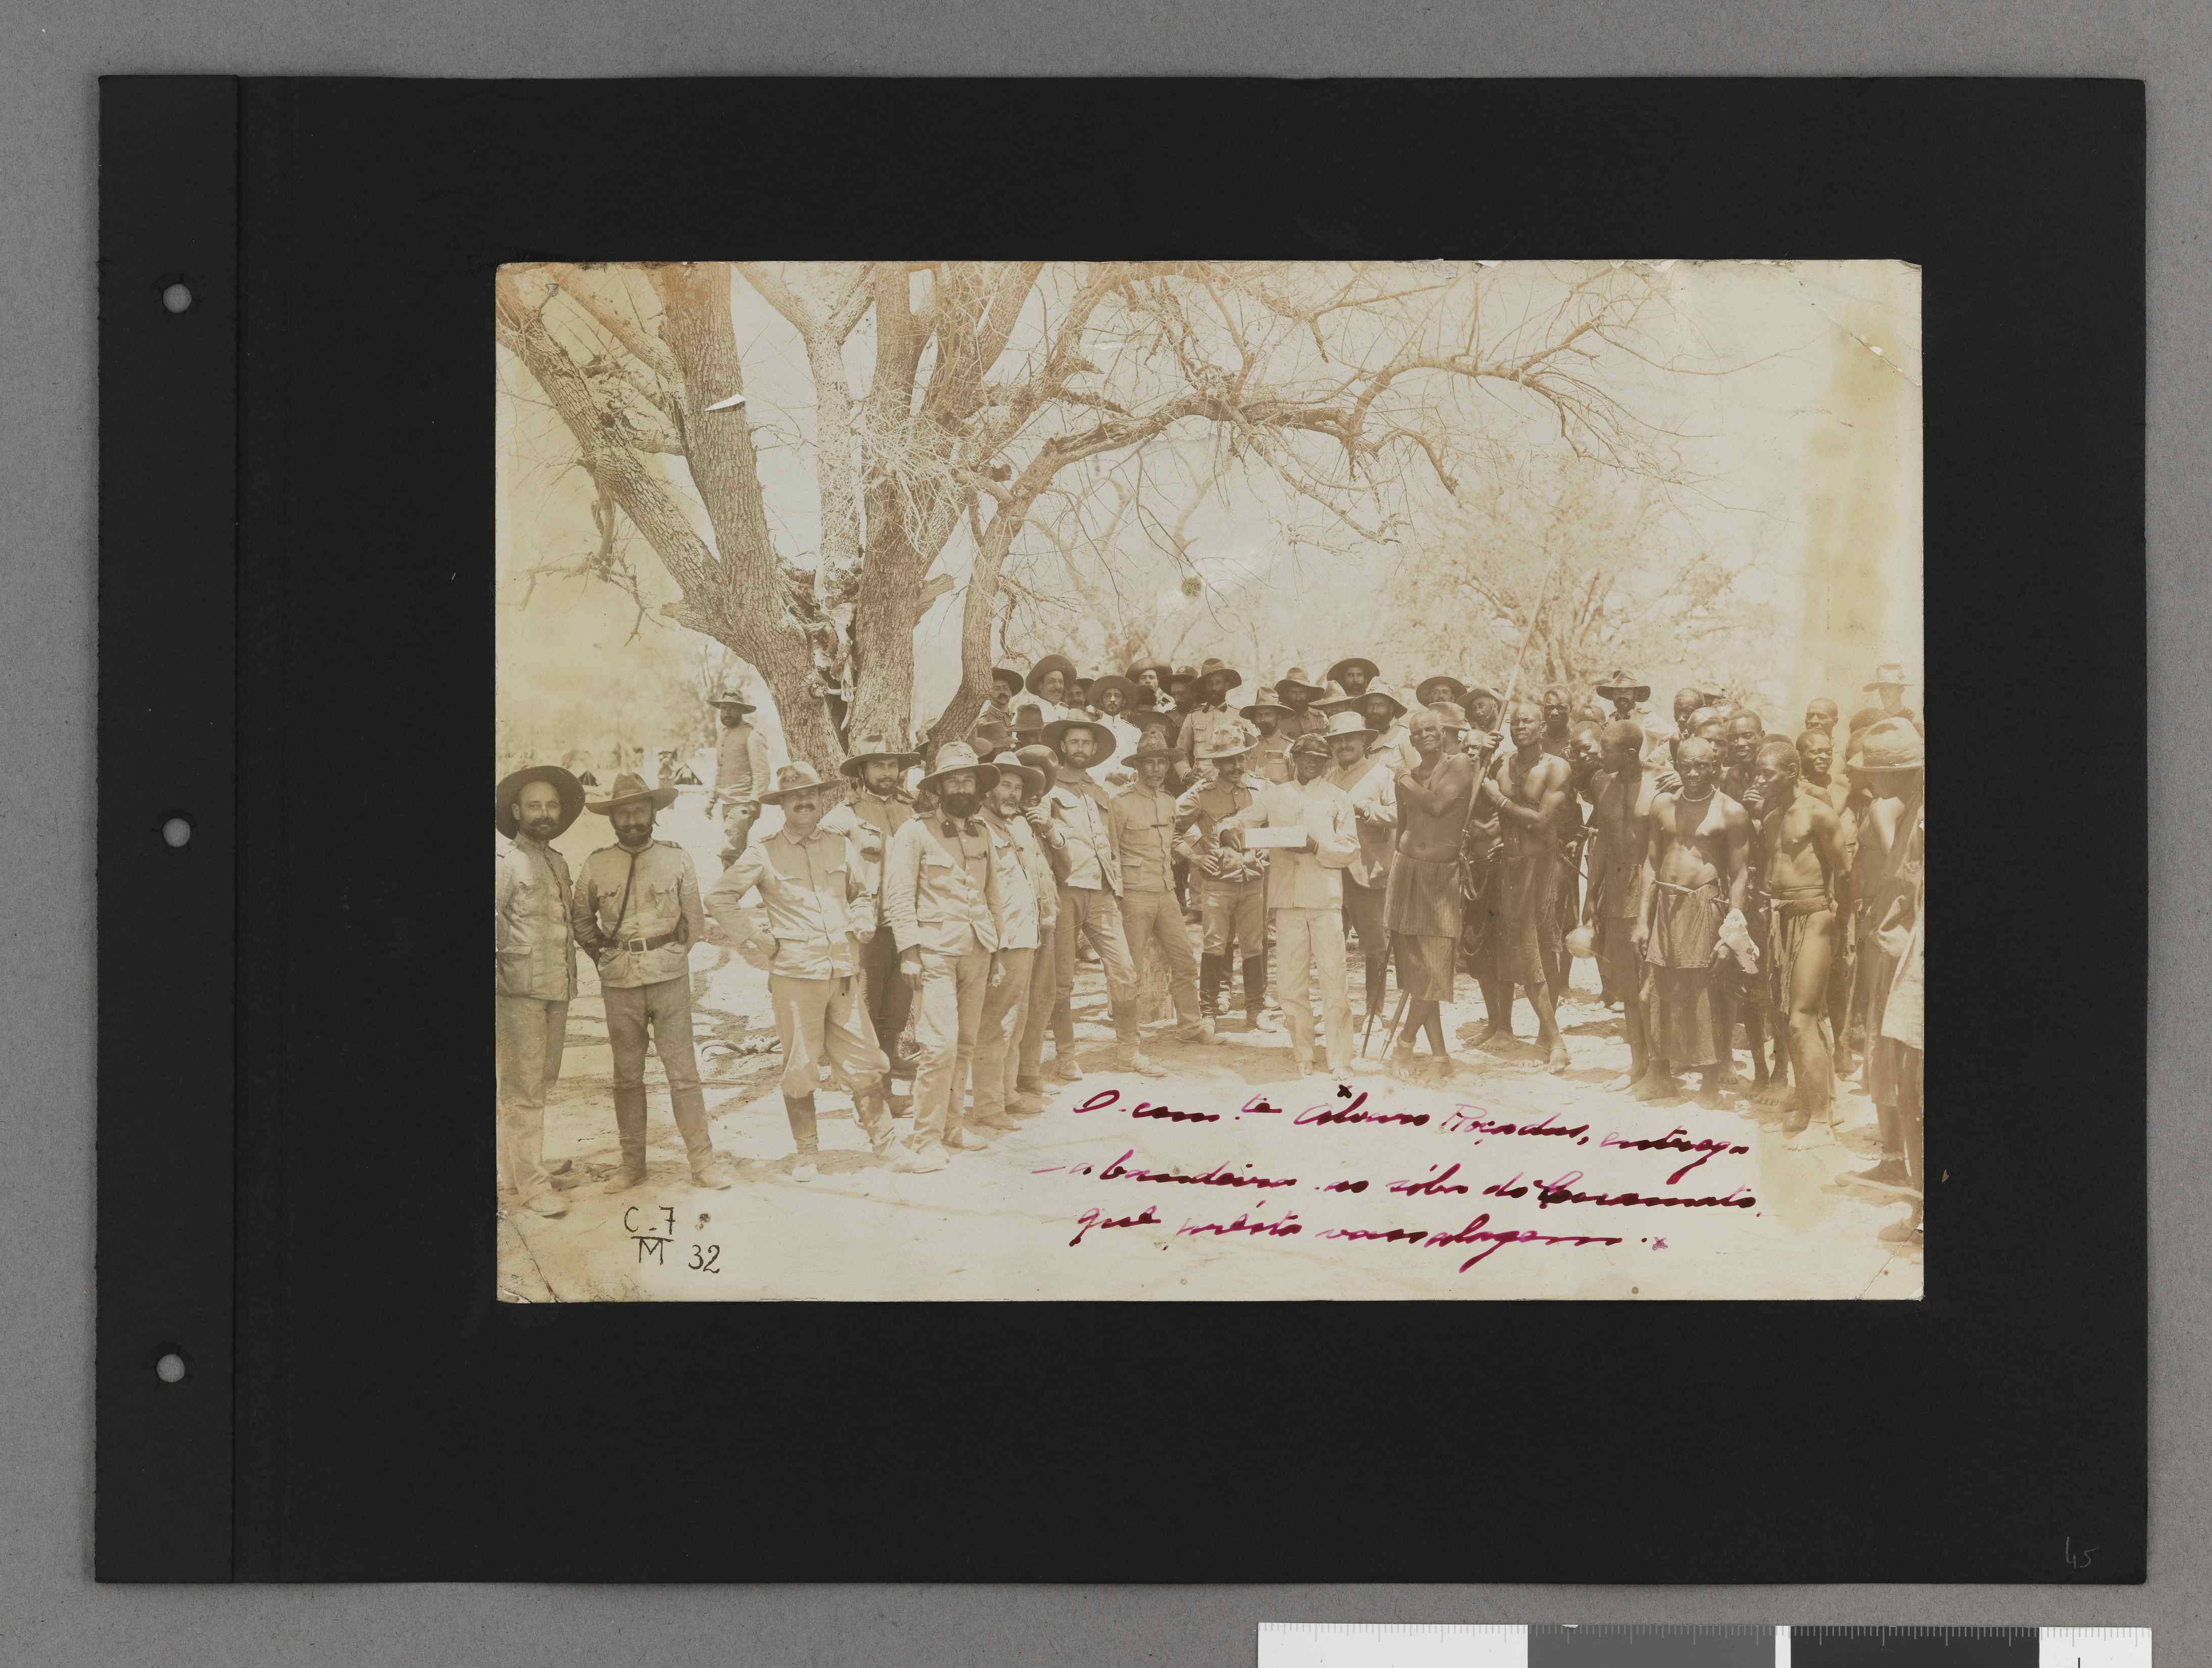 O com.te Alvaro Roçadas, entrega
a bandeira ao sóba do Cuamato,
que présta vassalagem.
C-7
M 32
45